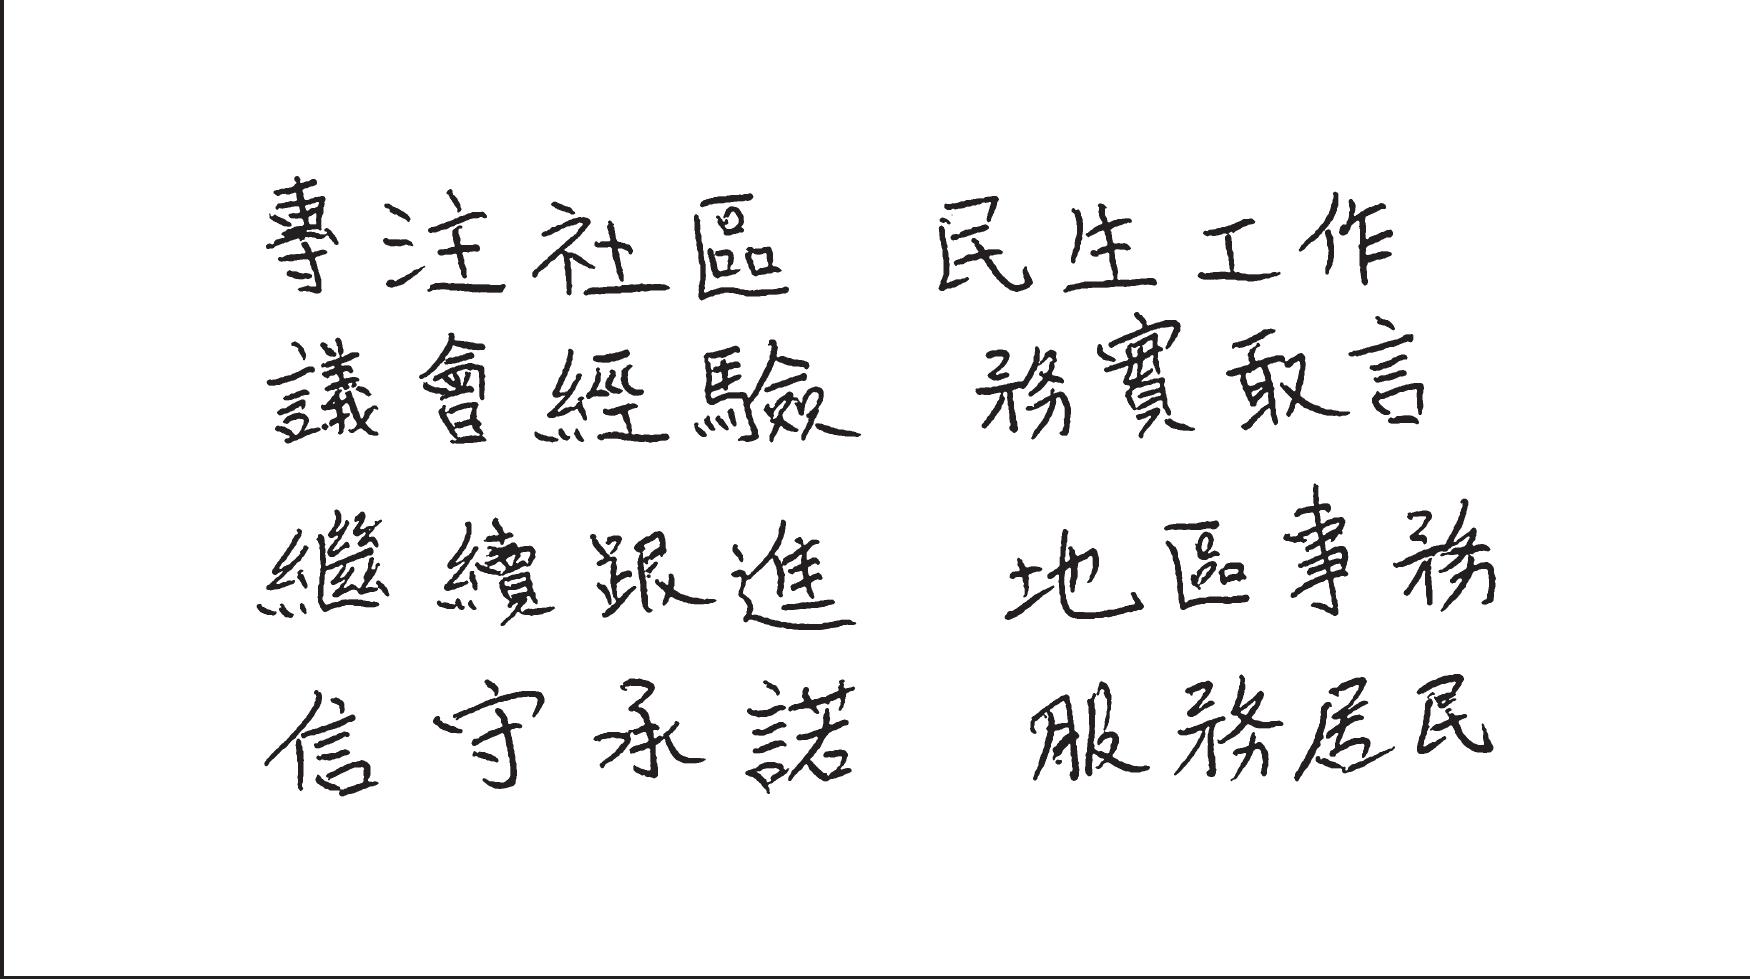 專注社區 民生工作
議會經驗 務實敢言
繼續跟進 地區事務
信守承諾 服務居民